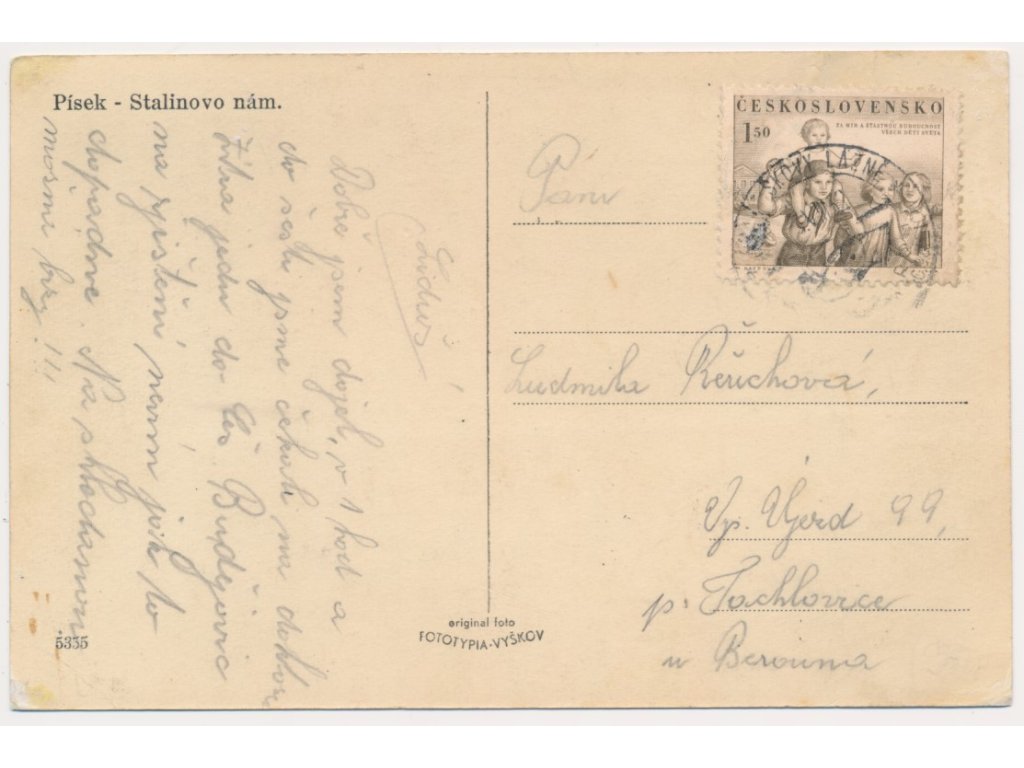 Písek - Stalinovo nám.
Dobře jsem dojel, v 1 hod a
do šesti jsme čekali na dokto
jedu do Č. Budějovic
na zjištění nevím jak to
dopadne. Na shledanou
brz !!!
5335
original foto
FOTOTYPIA-VYŠKOV
ČESKOSLOVENSKO
1 50
ZA MÍR A ŠŤASTNOU BUDOUCNOST
VŠECH DĚTÍ SVĚTA
LÁZNĚ
Paní
Ludmila Řeřichová,
Vys. Újezd 99,
p. Tachlovice
u Berouna